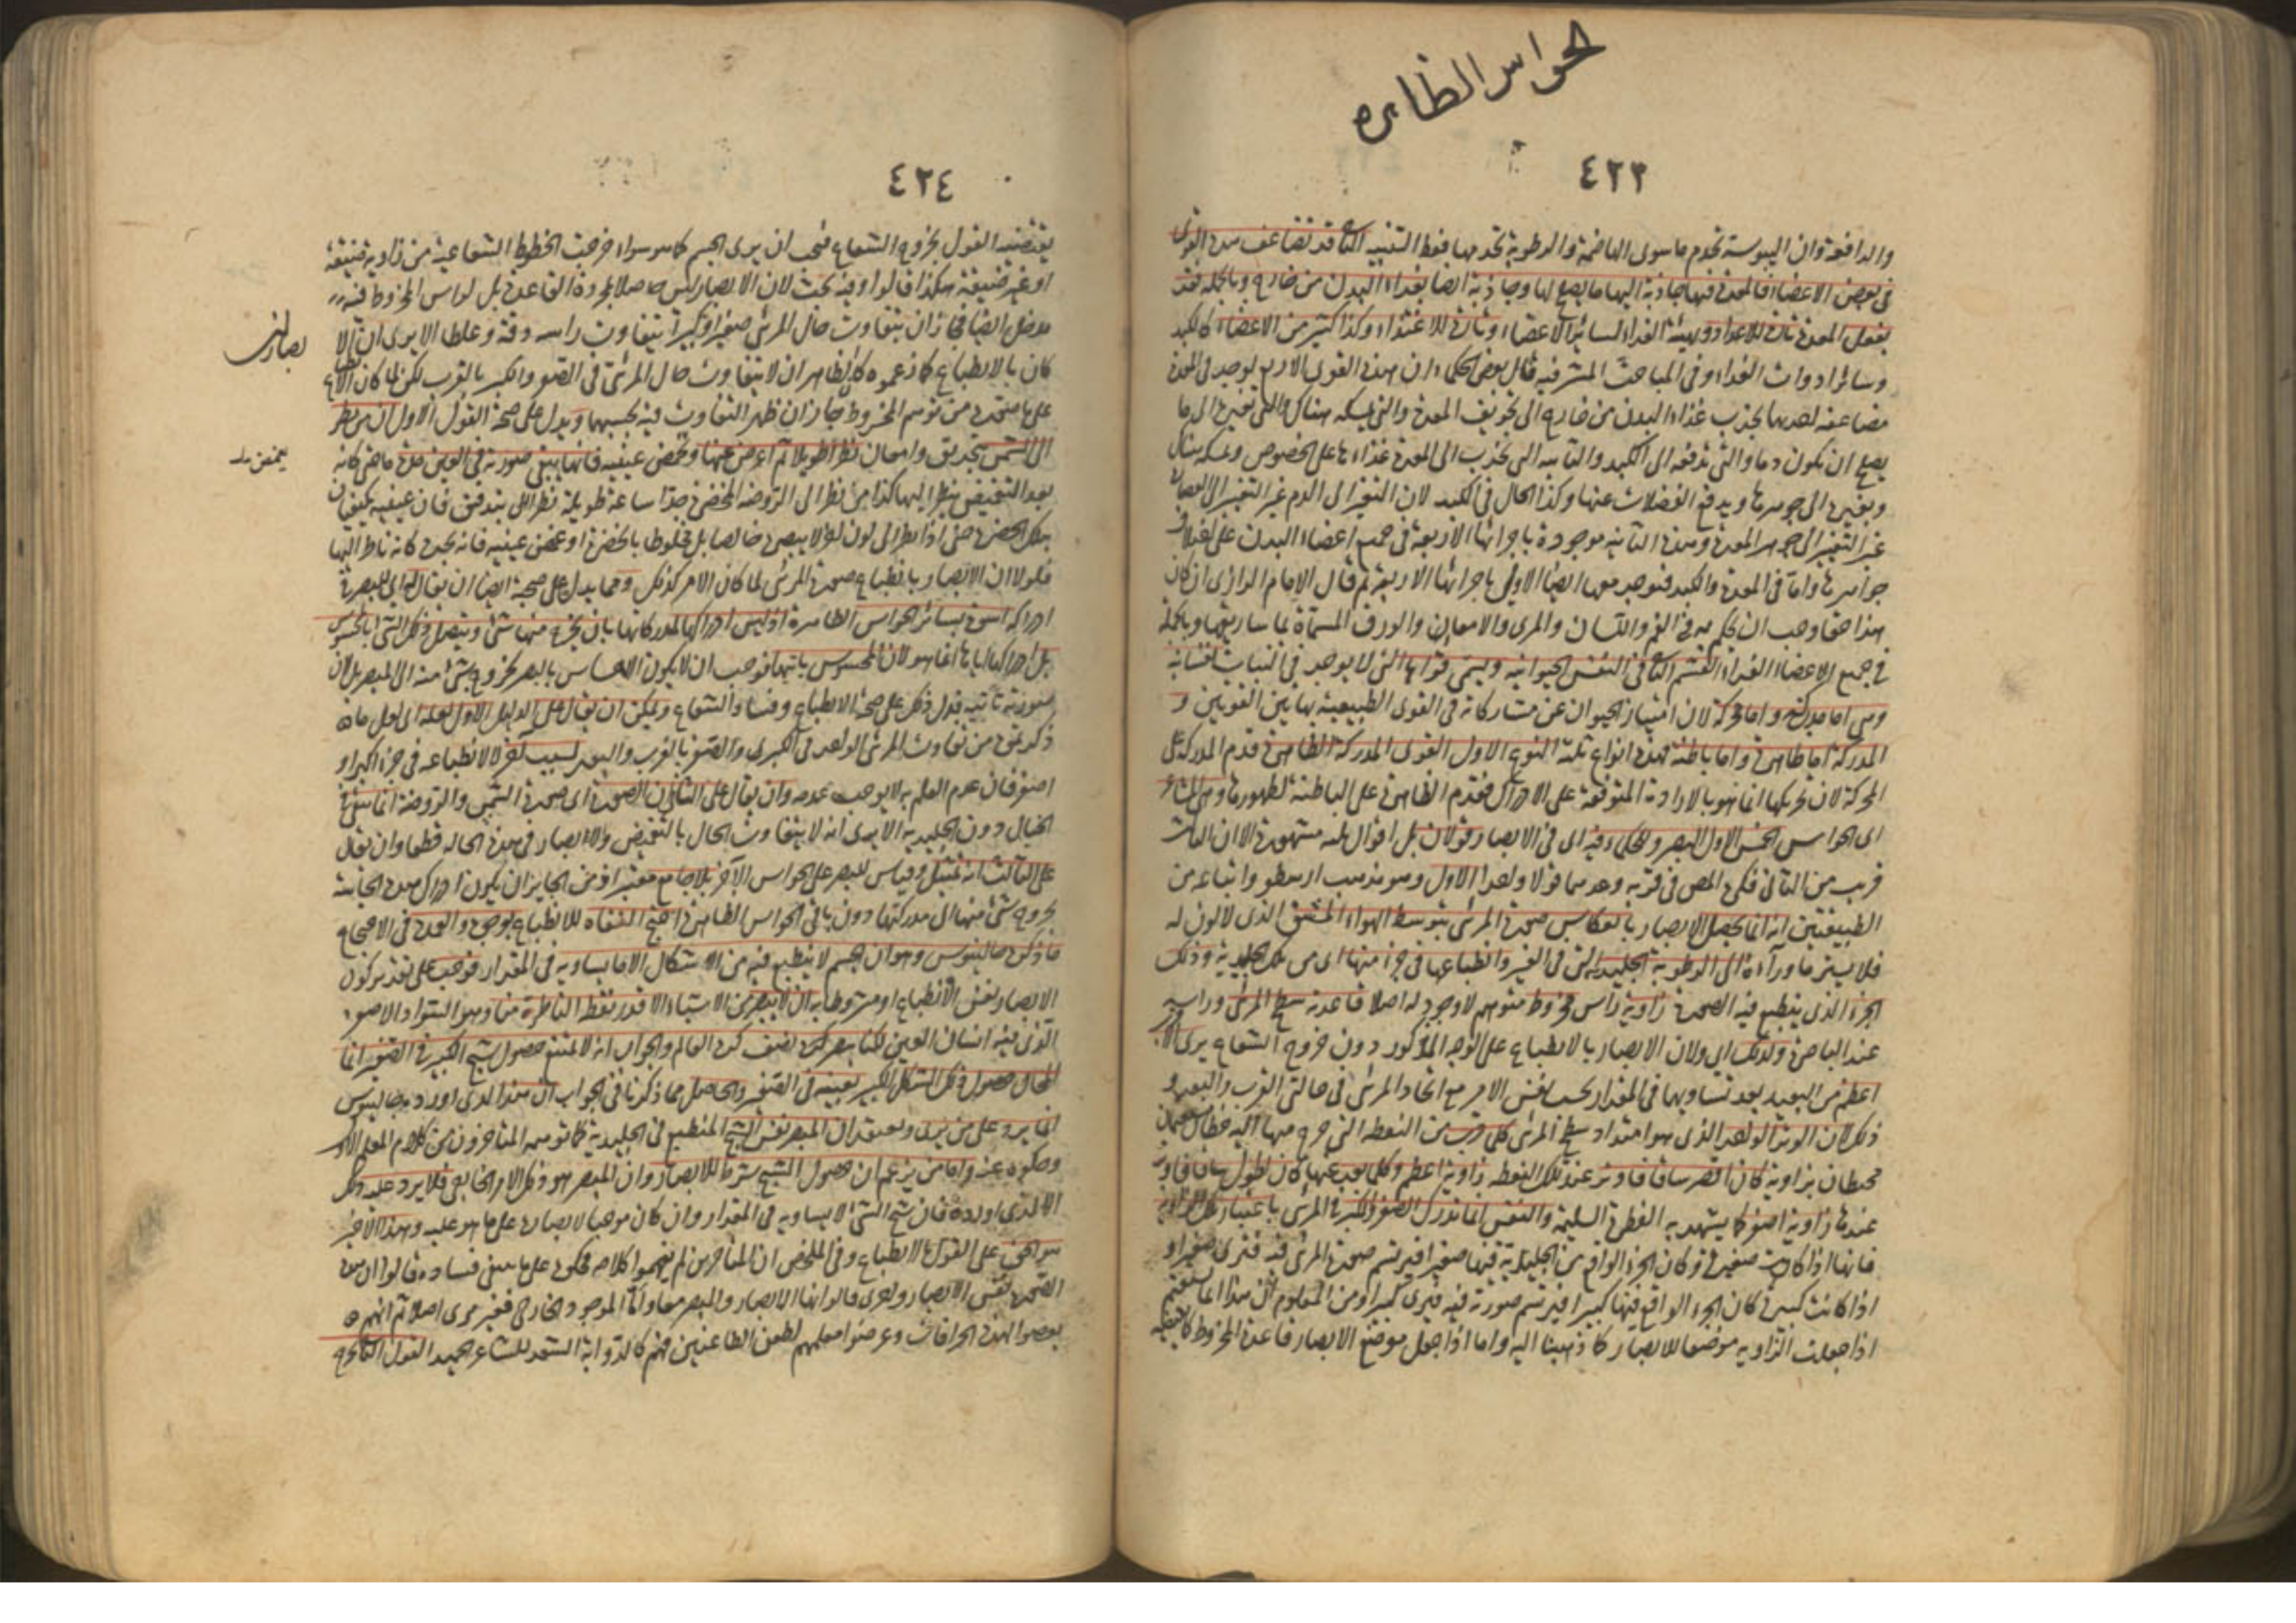 حواس الظاهره
٤٢٣
والدافعة وان اليبوسة تخدم ما سوى الهاضمة والرطوبة تخدمها فقط التنبيه الثانى قد تتضاعف هذه القوى
فى بعض الاعضاء فالمعدة فيها جاذبة اليها ما يصلح لها وجاذبة ايضا لغذاء البدن من خارج وبالجملة فقد
بفعل المعدة تارة للاعداد وتهيئة الغذاء لسائر الاعضاء وتارة للاغتذاء وكذا كثير من الاعضاء كالكبد
وسائر ادوات الغذاء وفى المباحث المشرقية قال بعض الحكماء ان هذه القوى الاربع توجد فى المعدة
مضاعفة احديها تجذب غذاء البدن من خارج الى تجويف المعدة والتى تمسكه هناك والتى تغيره الى ما
يصلح ان يكون دما والتى تدفعه الى الكبد والثانية التى تجذب الى المعدة غذاءها على الخصوص وتمسكه هناك
وتغيره الى جوهرها ويدفع الفضلات عنها وكذا الحال فى الكبد لان التغير الى الدم غير التغير الى
غير التغير الى جوهر المعدة وهذه الثانية موجودة باجزائها الاربعة فى جميع اعضاء البدن على اختلاف
جواهرها واما فى المعدة والكبد فتوجد معها ايضا الاولى باجزائها الاربعة ثم قال الامام الرازى ان كان
هذا حقا وجب ان يحكم به فى الفم واللسان والمرى والامعاء والعروق المسماة بماساريقا وبالجملة
فى جميع الاعضاء الغذاء القسم الثانى فى النفس الحيوانية وتسمى قواها التى لا توجد فى النبات نفسانية
وهى اما مدركة واما محركة لان امتياز الحيوان عن مشاركاته فى القوى الطبيعية بهاتين القوتين و
المدركة اما ظاهرة واما باطنة فهذه انواع ثلثة النوع الاول القوى المدركة الظاهرة قدم المدركة على
المحركة لان تحريكها انما هو بالارادة المتوقفة على الادراك فقدم الظاهرة على الباطنة لظهورها وهى المشاعر
اى الحواس الخمس الاول البصر وللحكماء فيه اى فى الابصار قولان بل اقوال ثلثة مشهورة الا ان الثالث
قريب من الثانى فكره المص فى قربه وعدهما قولا واحدا الاول وهو مذهب ارسطو واتباعه من
الطبيعيين انه انما يحصل الابصار بانعكاس صورة المرئى بتوسط الهواء المشف الذى لا لون له
فلا يستر ما وراءه الى الرطوبة الجليدية التى فى العين وانطباعها فى جزء منها اى من تلك الجليدية وذلك
الجزء الذى ينطبع فيه الصورة زاوية رأس مخروط متوهم لا وجود له اصلا قاعدته سطح المرئى ورأسه
عند الباصرة ولذلك اى ولان الابصار بالانطباع على الوجه المذكور دون خروج الشعاع يرى
اعظم من البعيد بعد تساويهما فى المقدار بحسب نفس الامر مع اتحاد المرئى فى حالتى القرب والبعد و
ذلك لان الوتر الواحد الذى هو امتداد سطح المرئى كلما قرب من النقطة التى خرج منها اليه خطان
محيطان بزاوية كان اقصر ساقا فاوتر عند تلك النقطة زاوية اعظم وكلما بعد عنها كان اطول ساقا فاوتر
عندها زاوية اصغر كما يشهد به الفطرة السليمة والنفس انما تدرك الصغر والكبر فى المرئى باعتبار تلك الزاوية
فانها اذا كانت صغيرة وكان الجزء الواقع من الجليدية فيها صغيرا فيرتسم صورة المرئى فيه فترى صغيرا و
اذا كانت كبيرة كان الجزء الواقع فيها كبيرا فيرتسم صورته فيه فترى كبيرا ومن المعلوم ان هذا انما يستقيم
اذا جعلت الزاوية موضعا للابصار كما ذهبنا اليه واما اذا جعل موضع الابصار قاعدة المخروط كما
٤٢٤
يقتضيه القول بخروج الشعاع فيجب ان يرى الجسم كما هو سواء خرجت الخطوط الشعاعية من زاوية ضيقة
او غير ضيقة هكذا قالوا وفيه بحث لان الابصار ليس حاصلا بمجرد القاعدة بل لراس المخروط فيه
مدخل ايضا فجاز ان يتفاوت حال المرئى صغرا وكبرا بتفاوت راسه دقة وغلظا الا يرى ان
كان بالانطباع كما زعموه كان الظاهر ان لا يتفاوت حال المرئى فى الصغر والكبر بالقرب لكن لما كان
على ما صححه من توسم المخروط جاز ان ظهر التفاوت فيه بحسبهما ويدل على صحة القول الاول ان من نظر
الى الشمس بتحديق وامعان نظرا طويلا ثم اعرض عنها وغمض عينيه فانها يبقى صورته فى العين مدة ما حتى كانه
بعد التغميض ينظر اليها كذا من نظر الى الروضة المخضرة جدا ساعة طويلة نظرا بتدقيق فان عينيه يتكيفان
بتلك الخضرة حتى اذا نظر الى لون اخر لا يبصره خالصا بل مخلوطا بالخضرة او غمض عينيه فانه يجد كانه ناظر اليها
فلولا ان الابصار بانطباع صورة المرئى لما كان الامر كذلك ومما يدل على صحته ايضا ان يقال
ادراكه اسوة بسائر الحواس الظاهرة اذ ليس ادراكها لمدركاتها بان يخرج منها شئ ويتصل بذلك الشئ المحسوس
بل ادراكها اياها انما هو لان المحسوس يأتيها فوجب ان لا يكون الاحساس بالبصر بخروج شئ منه الى المبصر بل لان
صورته تأتيه فدل ذلك على صحة الانطباع وفساد الشعاع ويمكن ان يقال على الدليل الاول لعله اى لعل ما
ذكرتموه من تفاوت المرئى الواحد فى الكبر والصغر بالقرب والبعد لسبب اخر لا لانطباعه فى جزء اكبر او
اصغر فان عدم العلم به لا يوجب عدمه وان يقال على الثانى ان الصورة اى صورة الشمس والروضة انما تبقى فى
الخيال دون الجليدية الا يرى انه لا يتفاوت الحال بالتغميض ولا ابصار فى هذه الحالة قطعا وان يقال
على الثالث انه تمثيل وقياس للبصر على الحواس الاخر بلا جامع معتبر اذ من الجايز ان يكون ادراك هذه الحاسة
بخروج شئ منها الى مدركها دون باقى الحواس الظاهرة احتج النفاة للانطباع بوجوه والعمدة فى الاحتجاج
ما ذكره جالينوس وهو ان الجسم لا ينطبع فيه من الاشكال الا ما يساويه فى المقدار فوجب على تقدير كون
الابصار نفس الانطباع او مشروطا به ان لا يبصر من الاشياء الا قدر نقطة الناظرة منا وهو السواد الاصغر
الذى فيه انسان العين لكنا نبصر نصف كرة العالم والجواب انه لا يمتنع حصول شبح الكبير فى الصغير انما
المحال حصول ذلك الشكل الكبير بعينه فى الصغير والحاصل مما ذكرنا فى الجواب ان هذا الذى اورده جالينوس
انما يرد على من يرى ويعتقد ان المبصر نفس الشبح المنطبع فى الجليدية كما توهمه المتأخرون من كلام المعلم الاول
وحكوه عنه واما من يزعم ان حصول الشبح شرط للابصار وان المبصر هو ذلك الامر الخارجى فلا يرد عليه ذلك
الذى اورده فان شبح الشئ لا يساويه فى المقدار وان كان موجبا لابصاره على ما هو عليه وهذا الاخير
هو الحق على القول بالانطباع وفى الملخص ان المتأخرين لم يفهموا كلامه فحكوه على ما يبين فساده وقالوا ان هذه
الصورة نفس الابصار واخرى قالوا انها الابصار والمبصر معا واما الموجود الخارجى فغير مرئى اصلا ثم انهم
تعصبوا لهذه الخرافات وعرضوا معلمهم لطعن الطاعنين فهم كالراوية السوء للشاعر المجيد القول الثانى